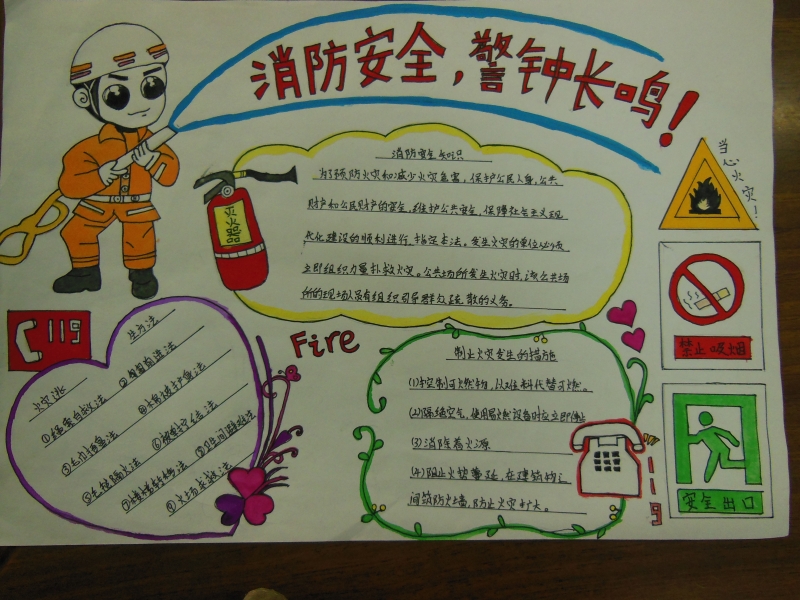 消防安全，警钟长鸣！
消防安全知识
为了预防火灾和减少火灾危害，保护公民人身，公共
财产和公民财产的安全，维护公共安全，保障社会主义现
代化建设的顺利进行，指定本法。发生火灾的单位必须
立即组织力量扑救火灾。公共场所发生火灾时，该公共场
所的现场人员有组织引导群众疏散的义务。
灭火器
当心火灾！
禁止吸烟
安全出口
119
Fire
火灾逃生方法
①绳索自救法
②匍匐前进法
③毛巾捂鼻法
④棉被护身法
⑤毛毯隔火法
⑥被单拧结法
⑦跳楼求生法
⑧卫生间避难法
⑨火场求救法
制止火灾发生的措施
(1)控制可燃物，以难燃料代替可燃。
(2)隔绝空气，使用易燃设备时应立即停止
(3)消除着火源
(4)阻止火势蔓延，在建筑物之
间筑防火墙，防止火灾扩大。
119